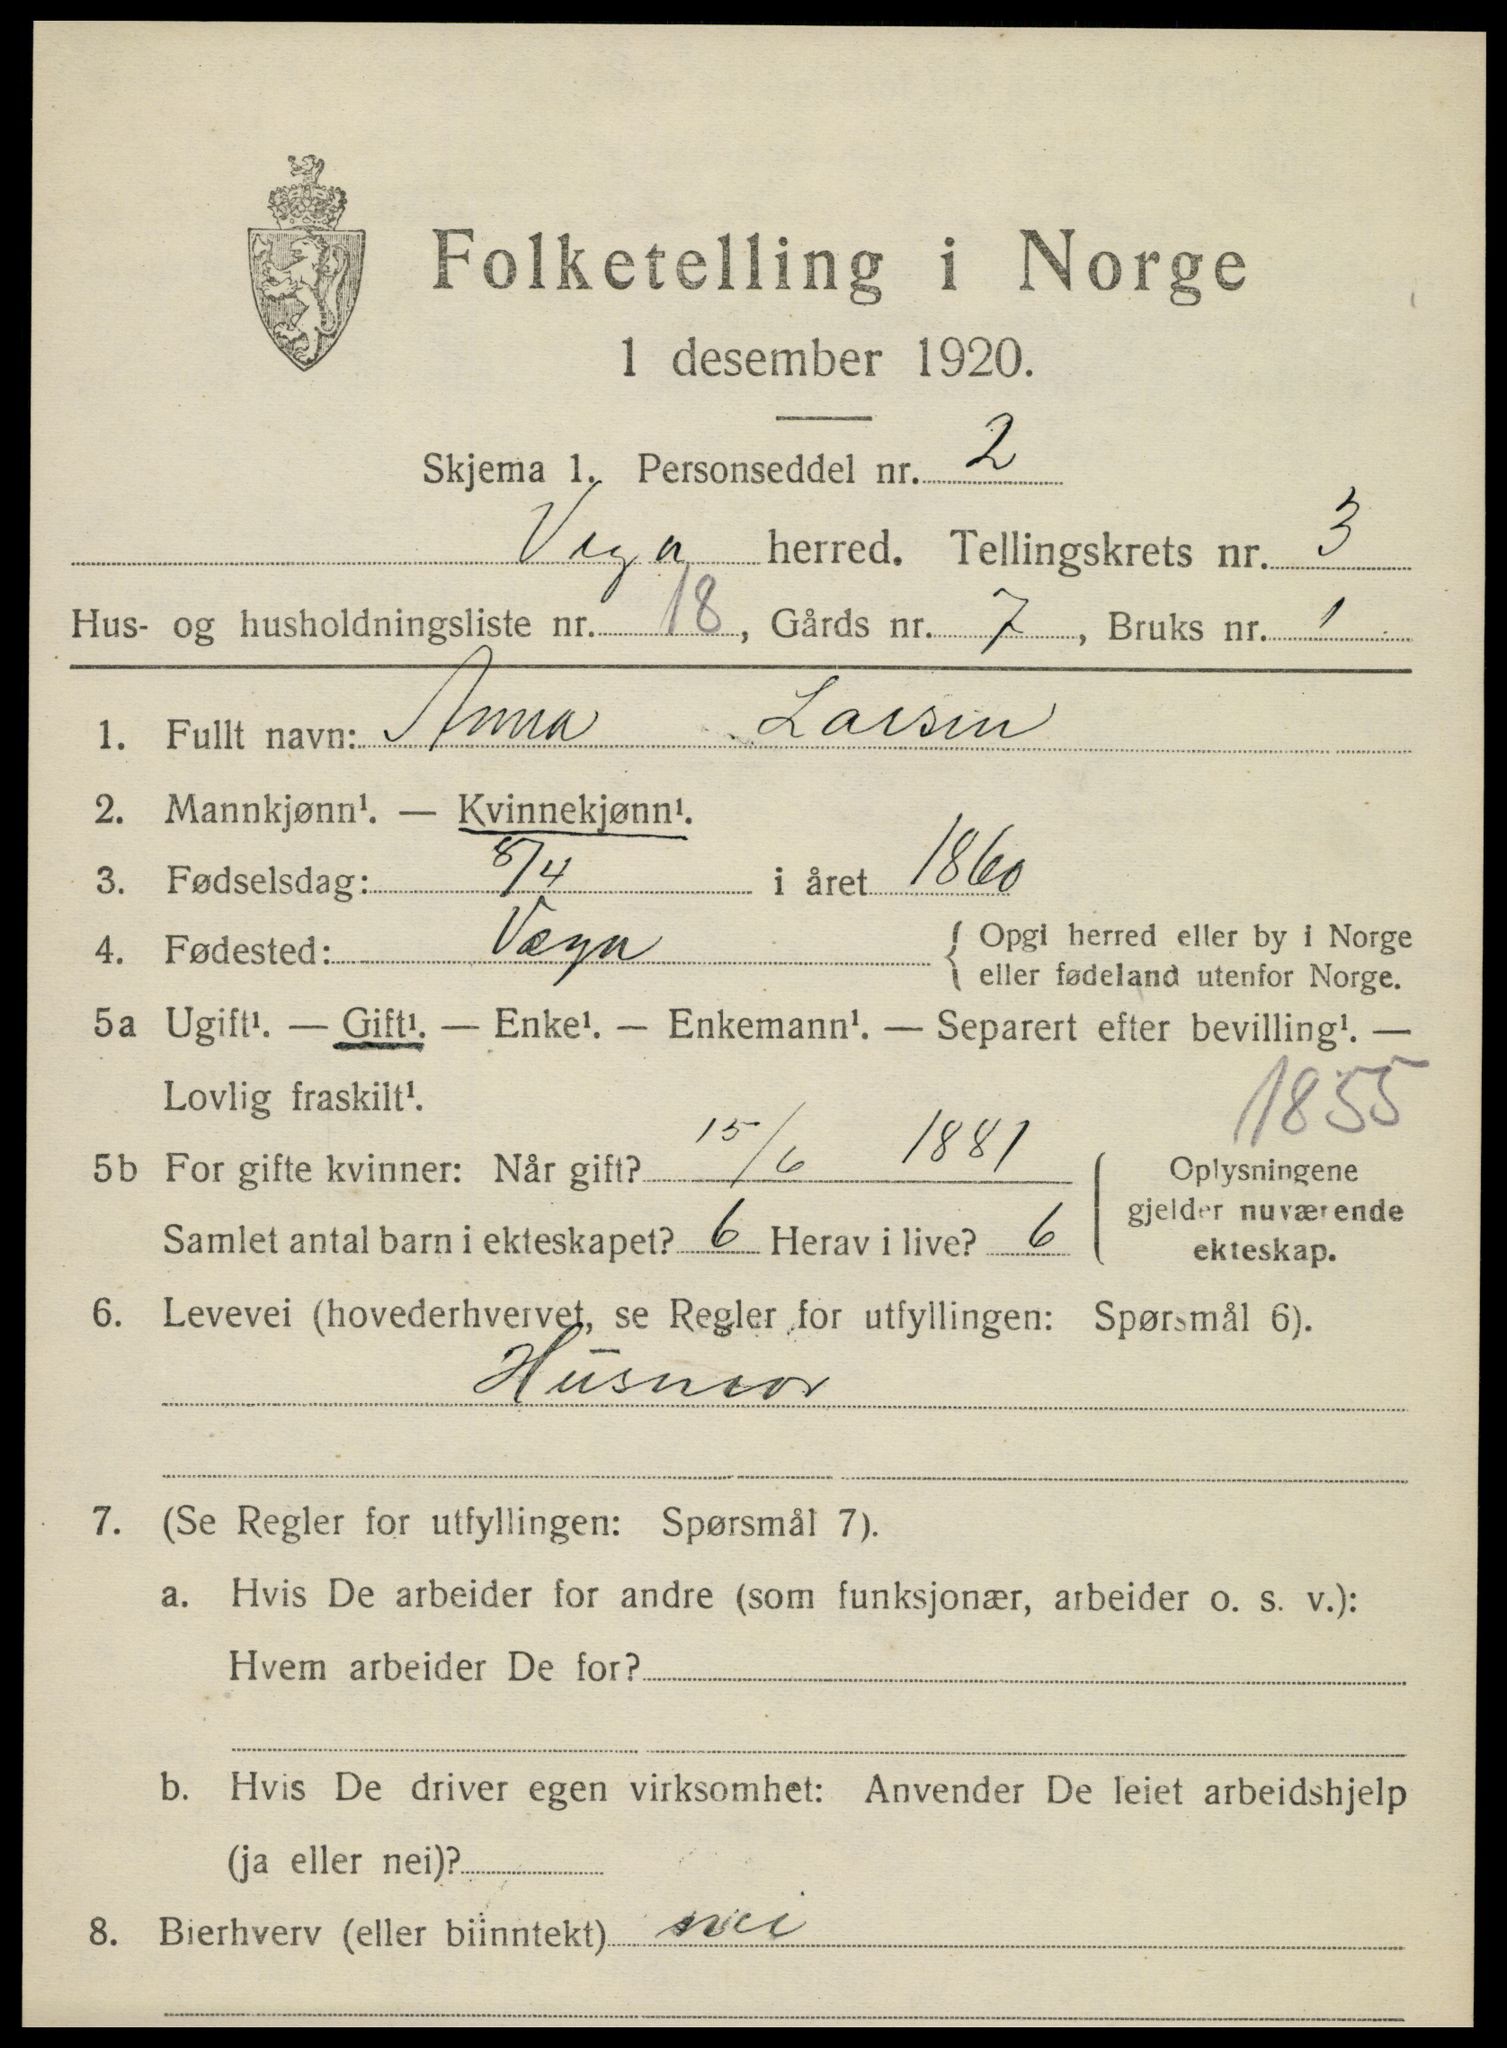 Folketelling i Norge
1 desember 1920.
Skjema 1. Personseddel nr. 2
Vega herred. Tellingskrets nr. 3
Hus- og husholdningsliste nr. 18, Gårds nr. 7, Bruks nr. 1
1. Fullt navn: Anna Larsen
2. Mannkjønn¹. — Kvinnekjønn¹.
3. Fødselsdag: 8/4 i året 1860
4. Fødested: Vega { Opgi herred eller by i Norge
eller fødeland utenfor Norge.
5a Ugift¹. — Gift¹. — Enke¹. — Enkemann¹. — Separert efter bevilling¹. —
Lovlig fraskilt¹.
1855
5b For gifte kvinner: Når gift? 15/6 1881
Samlet antal barn i ekteskapet? 6 Herav i live? 6
Oplysningene
gjelder nuværende
ekteskap.
6. Levevei (hovederhvervet, se Regler for utfyllingen: Spørsmål 6).
Husmor
7. (Se Regler for utfyllingen: Spørsmål 7).
a. Hvis De arbeider for andre (som funksjonær, arbeider o. s. v.):
Hvem arbeider De for?
b. Hvis De driver egen virksomhet: Anvender De leiet arbeidshjelp
(ja eller nei)?
8. Bierhverv (eller biinntekt) nei